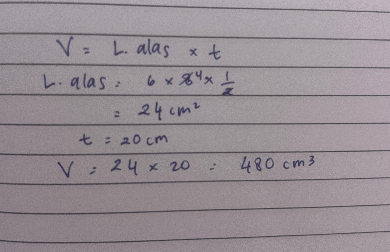 V = L. alas × t
L. alas = 6 × 8 4 × 1/2
= 24 cm²
t = 20 cm
V = 24 × 20 = 480 cm³